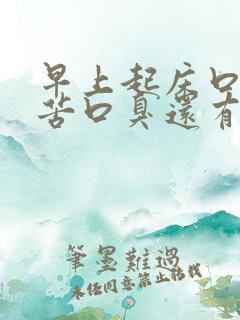 早上起床口
苦口臭還有
筆墨難過
未經同意禁止轉載